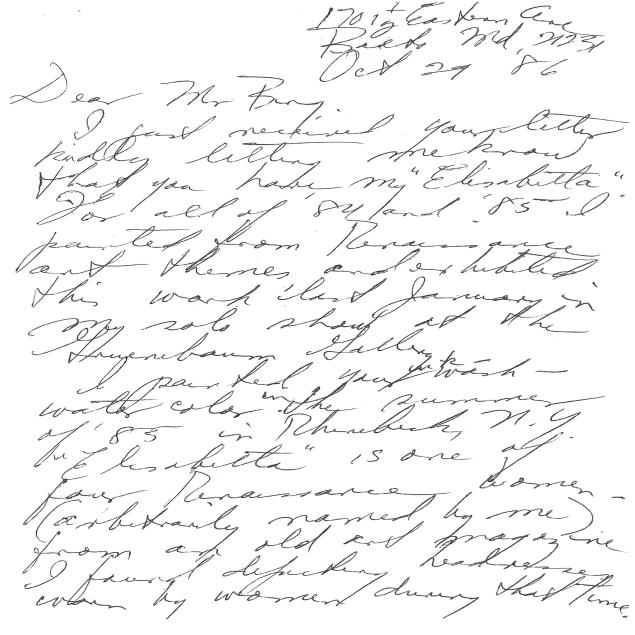 1701 ½ Eastern Ave
Balto Md, 21231
Oct 29 '86
Dear Mr
I just received your letter
kindly letting me know
that you have my "Elisabetta"
For all of '84 and '85 I
painted from Renaissance
art themes and exhibited
this work last January in
my solo show at the
Gruenebaum Gallery.
I painted your ink wash -
water color in the summer
of '85 in Rhinebeck, N.Y.
"Elisabetta" is one of
four Renaissance women -
(arbitrarily named by me)
from an old art magazine
I found depicting headdresses
worn by women during that time.